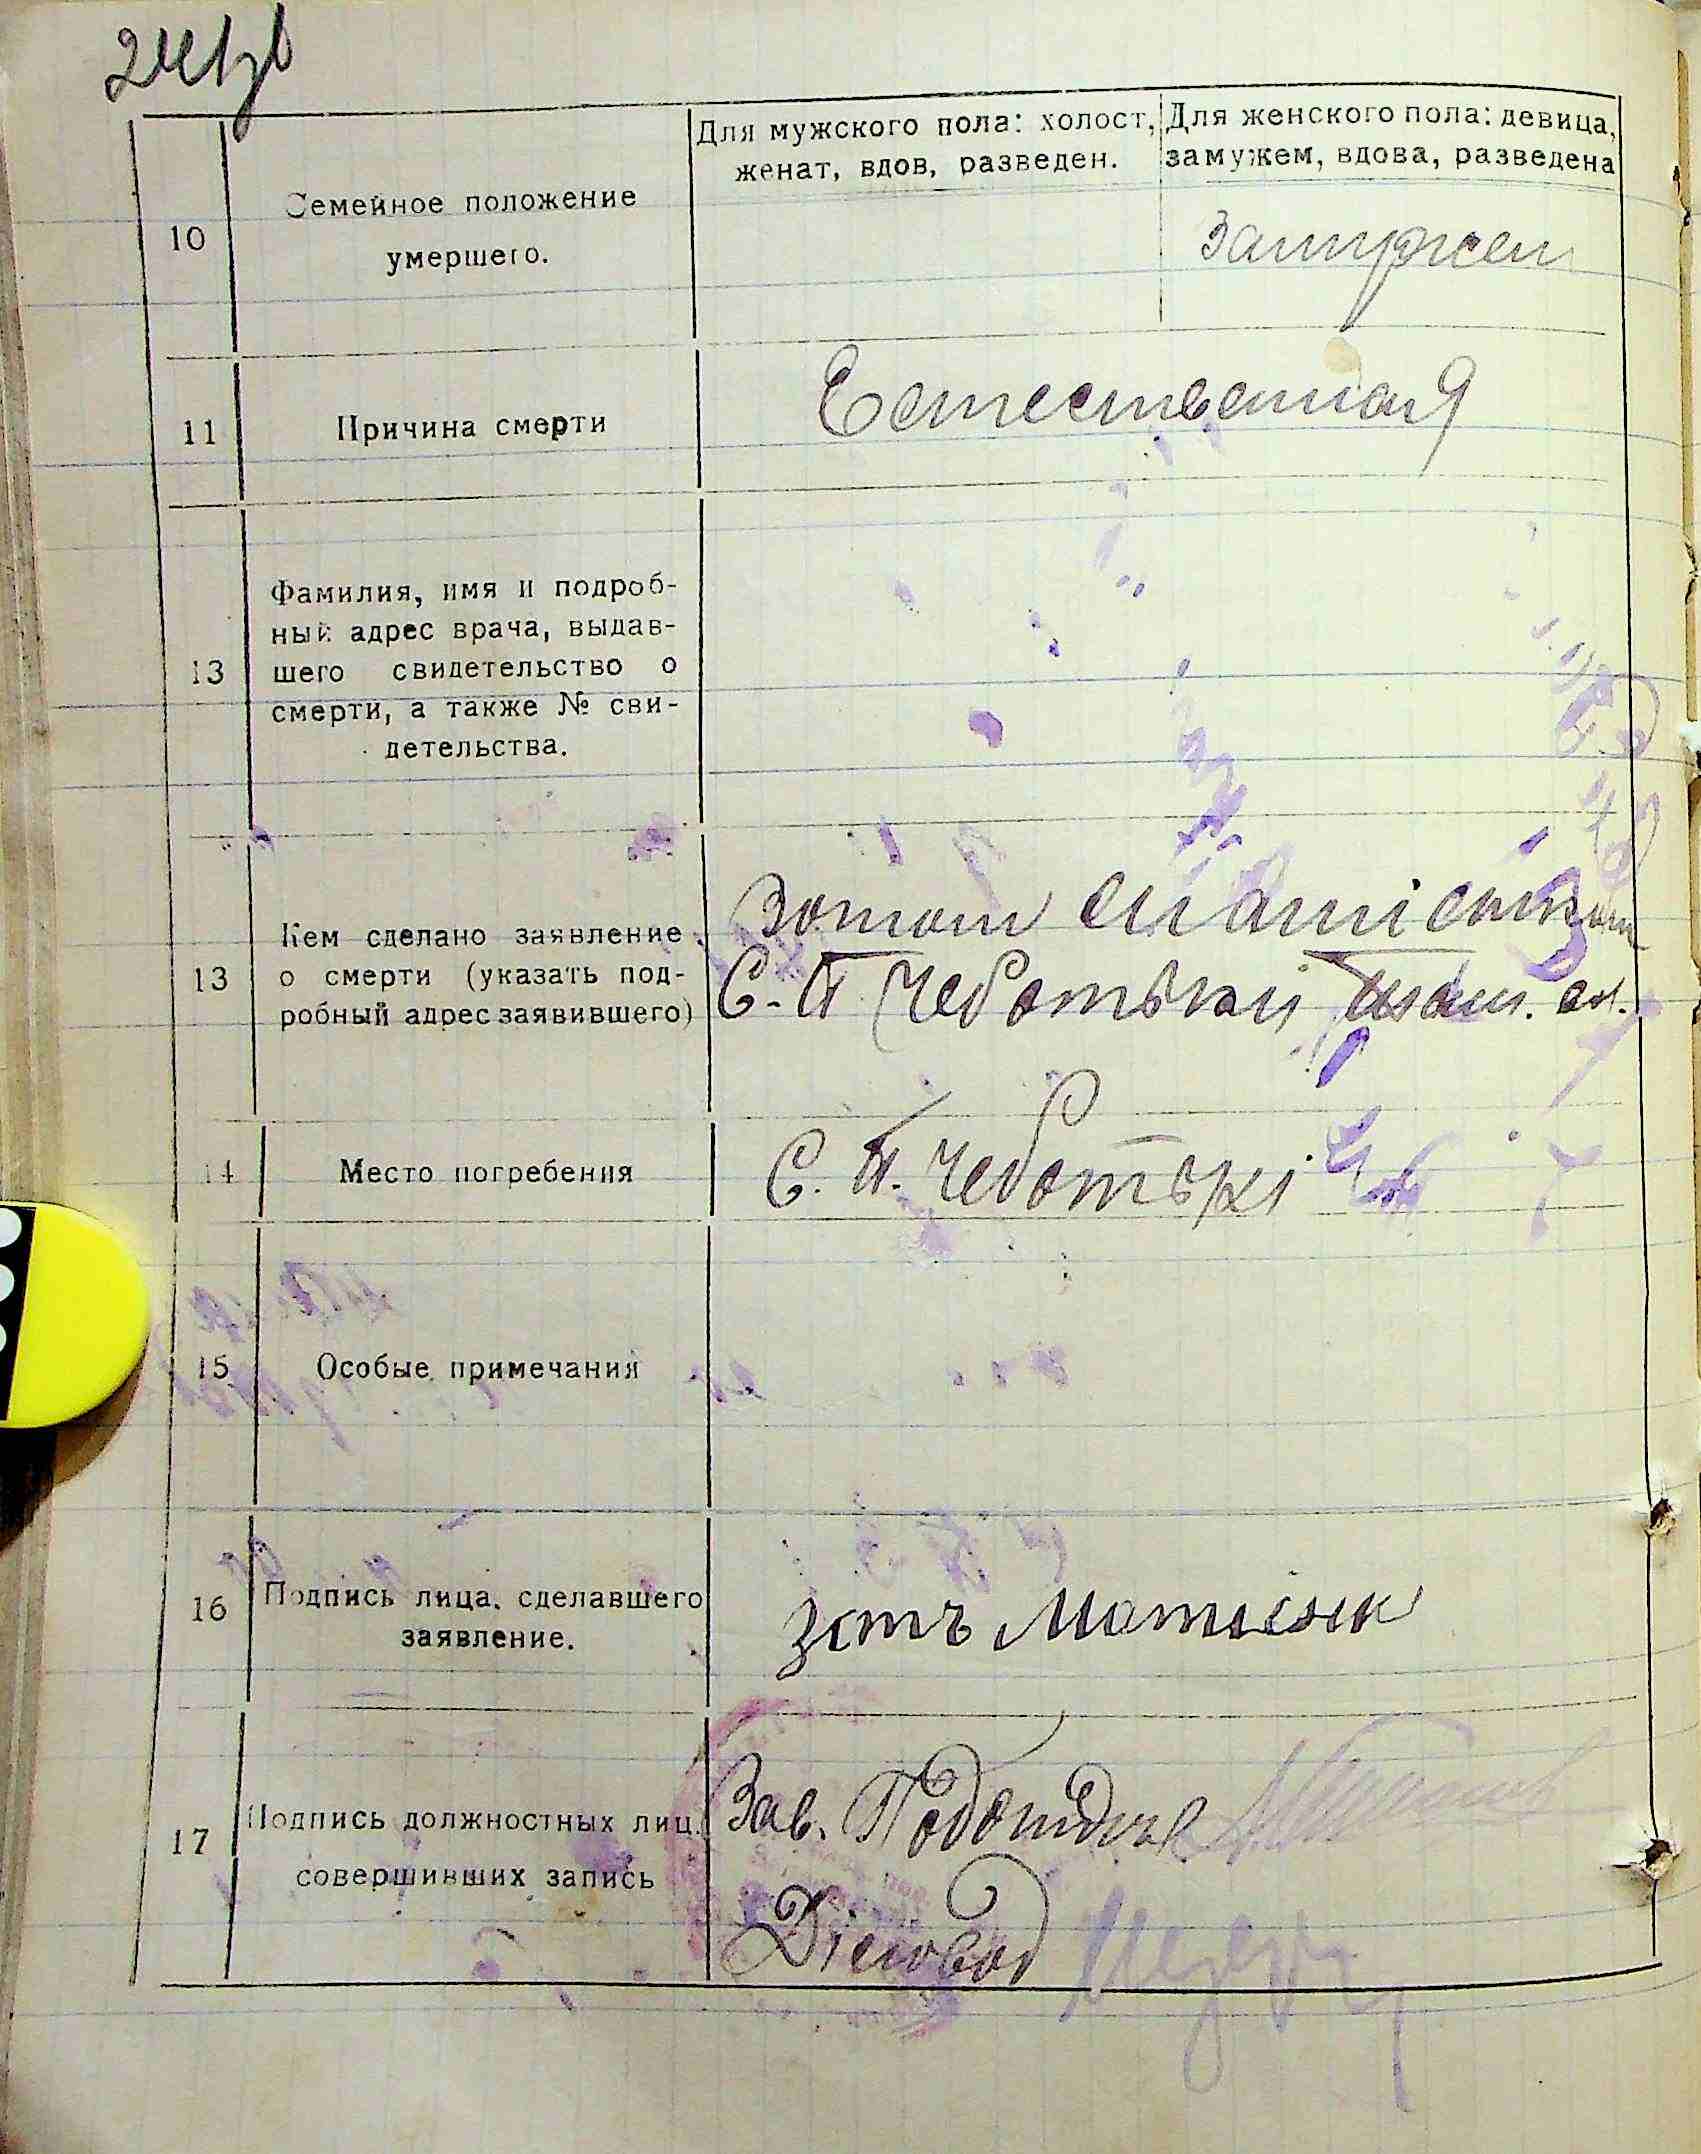 Для мужского пола: холост,
женат, вдов, разведен.
Для женского пола: девица,
замужем, вдова, разведена
10
Семейное положение
умершего.
Замужем
11
Причина смерти
Естественая
13
Фамилия, имя и подроб-
ный адрес врача, выдав-
шего свидетельство о
смерти, а также № сви-
детельства.
13
Кем сделано заявление
о смерти (указать под-
робный адрес заявившего)
Зотом
С. П Чеботьки
14
Место погребения
С. П. Чеботькі
15
Особые примечания
16
Подпись лица, сделавшего
заявление.
зотъ
17
Подпись должностных лиц,
совершивших запись
Зав. Подотдела
Діловод